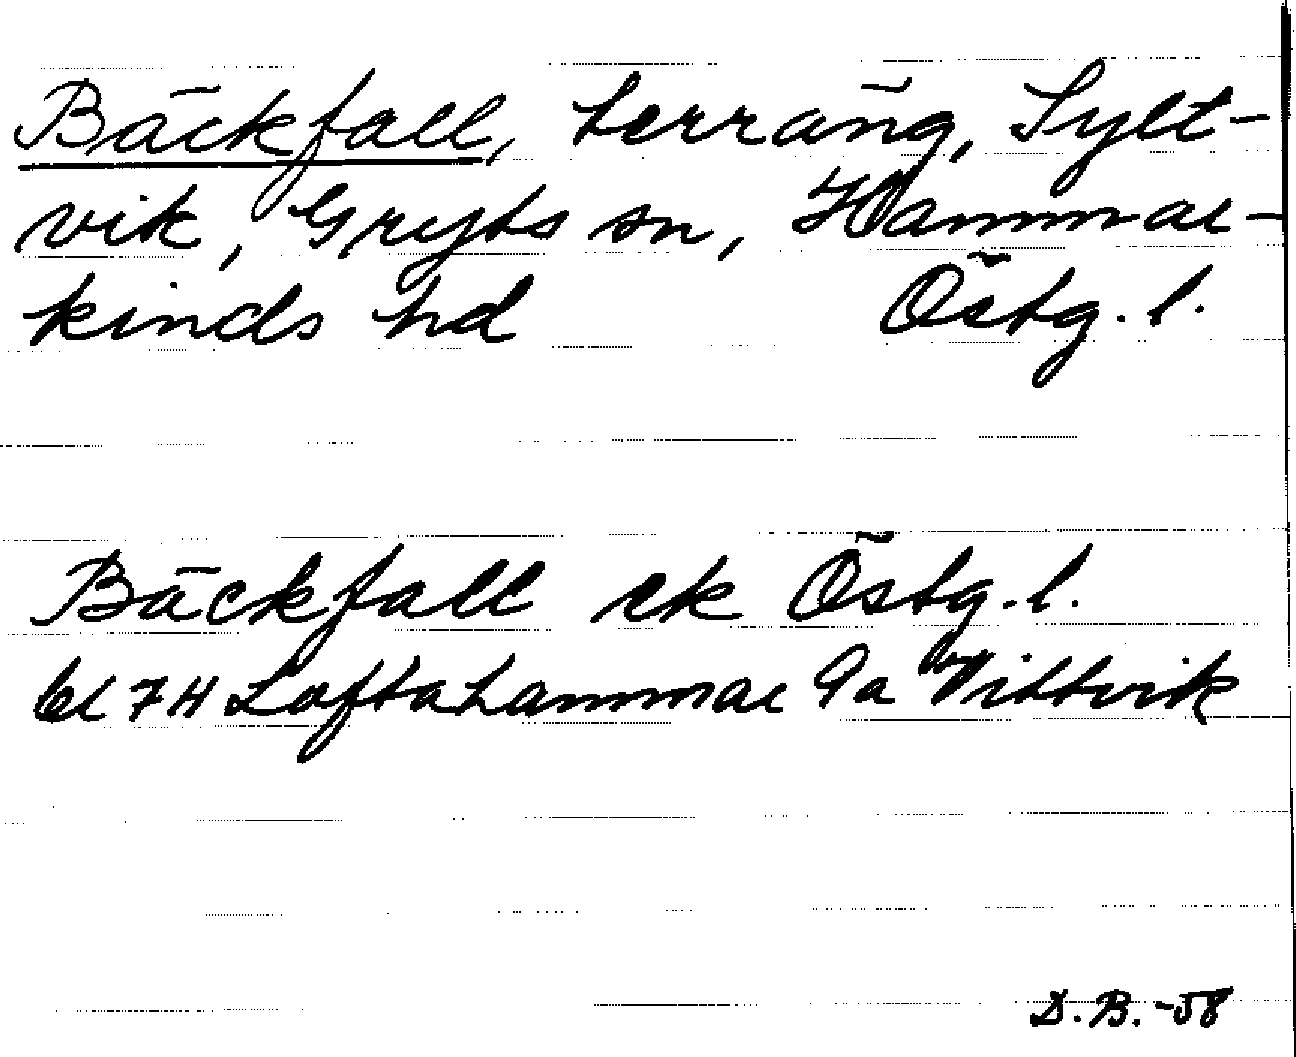 Bäckfall, herräng, Sylt-
vik, Gryts sn, Hammar-
kinds hd Östg. l.
Bäckfall ek Östg. l.
bl 7H Loftahammar 9a Vittvik
D. B. -58